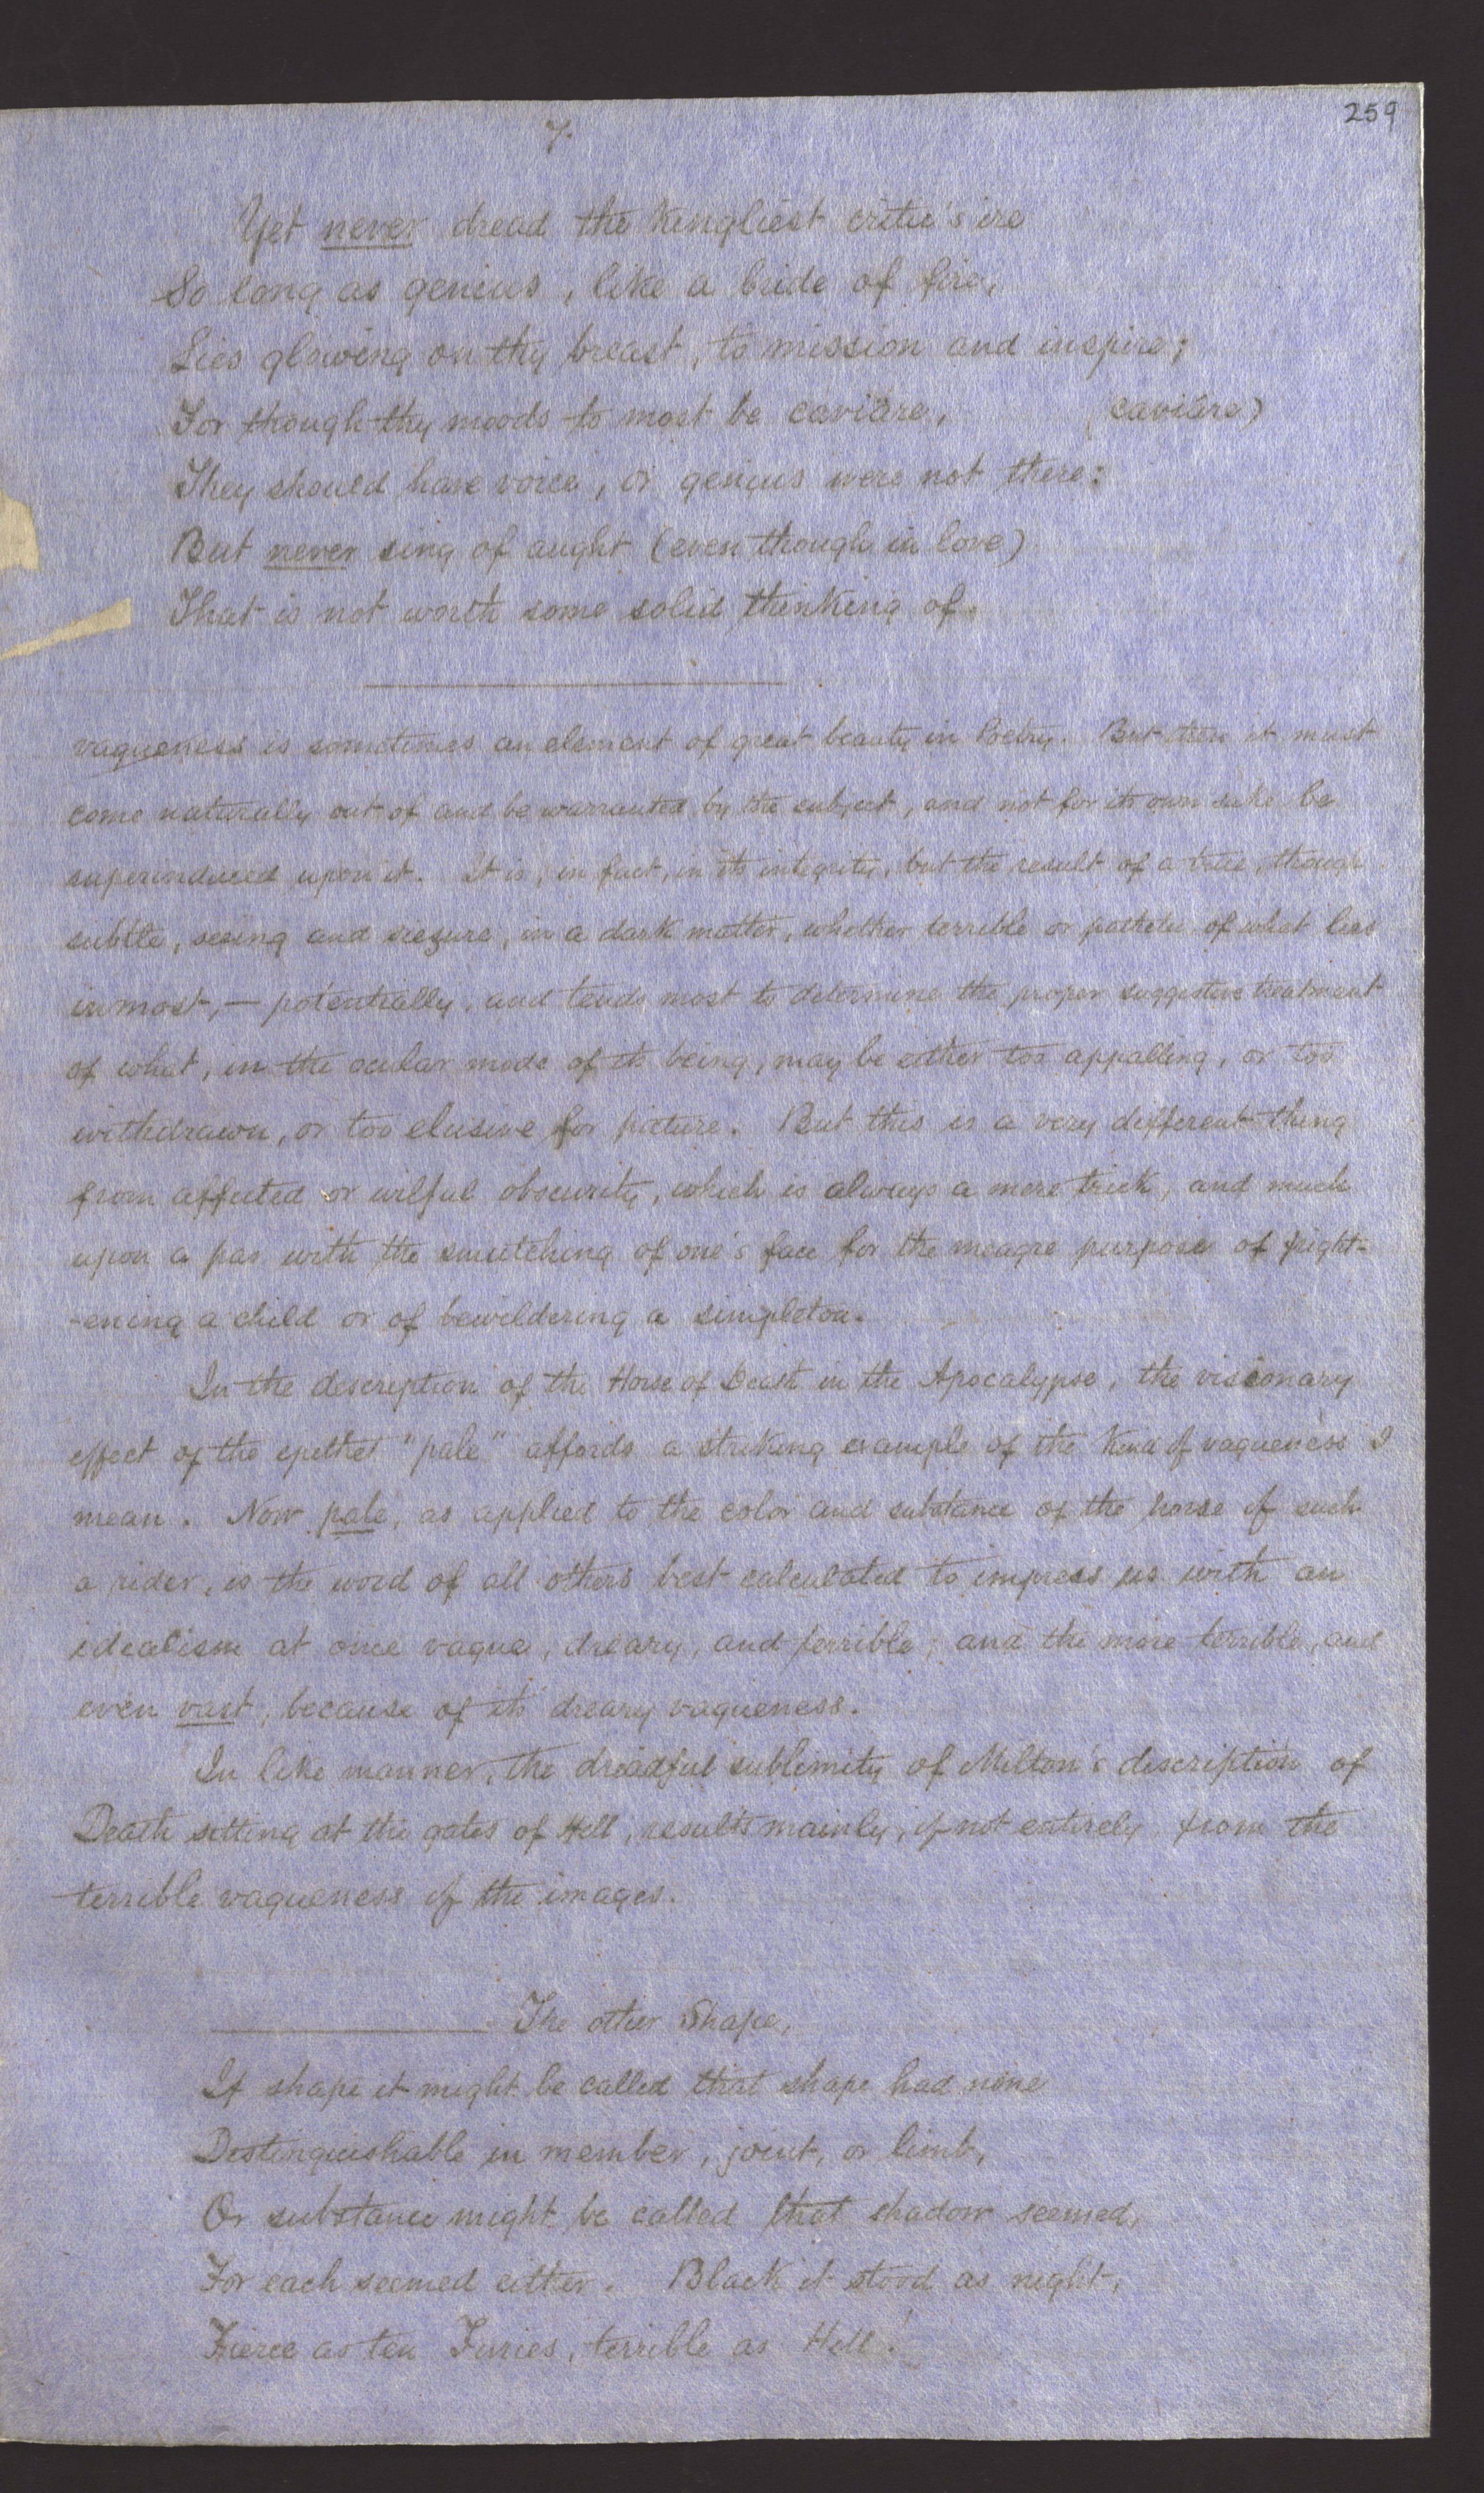 259
7.
Yet never dread the kingliest critic's ire
So long as genius, like a bride of fire,
Lies glowing on thy breast, to mission and inspire;
For though thy moods to most be caviare, (caviare)
They should have voice, or genius were not there:
But never sing of aught (even though in love)
That is not worth some solid thinking of.
vagueness is sometimes an element of great beauty in Poetry. But then it must
come naturally out of and be warranted by the subject, and not for its own sake be
superinduced upon it. It is, in fact, in its integrity, but the result of a true, though
subtle, seeing and siezure, in a dark matter, whether terrible or pathetic of what lies
inmost,— potentially, and tends most to determine the proper suggestive treatment
of what, in the ocular mode of its being, may be either too appalling, or too
withdrawn, or too elusive for picture. But this is a very different thing
from affected or wilful obscurity, which is always a mere trick, and much
upon a par with the smutching of one's face for the meagre purpose of fright-
-ening a child or of bewildering a simpleton.
In the description of the Horse of Death in the Apocalypse, the visionary
effect of the epithet "pale" affords a striking example of the kind of vagueness I
mean. Now pale, as applied to the color and substance of the horse of such
a rider, is the word of all others best calculated to impress us with an
idealism at once vague, dreary, and terrible; and the more terrible, and
even vast, because of its dreary vagueness.
In like manner, the dreadful sublimity of Milton's description of
Death sitting at the gates of Hell, results mainly, if not entirely from the
terrible vagueness of the images.
The other Shape,
If shape it might be called that shape had none
Distinguishable in member, joint, or limb,
Or substance might be called that shadow seemed,
For each seemed either. Black it stood as night,
Fierce as ten Furies, terrible as Hell!